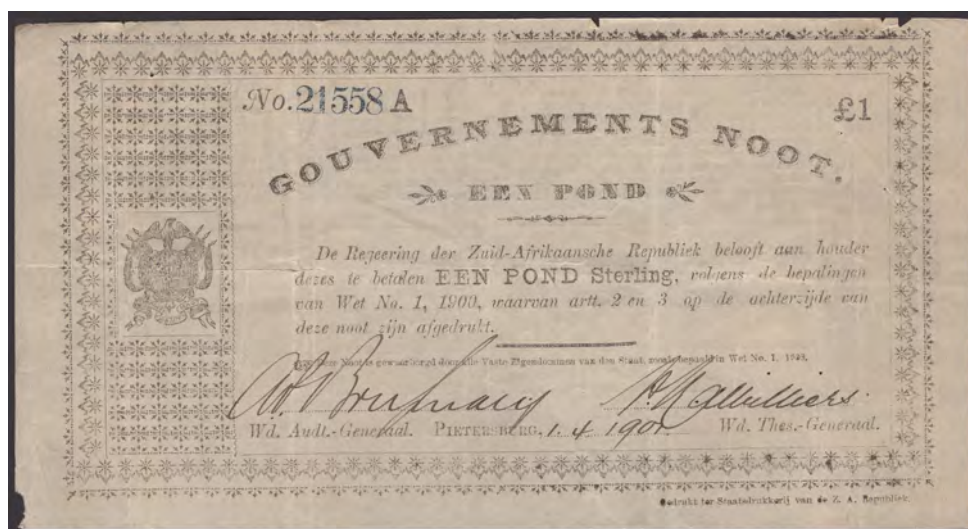 No. 21558 A £1
GOUVERNEMENTS NOOT.
EEN POND
De Regeering der Zuid-Afrikaansche Republiek belooft aan houder
dezes te betalen EEN POND Sterling, volgens de bepalingen
van Wet No. 1, 1900, waarvan artt. 2 en 3 op de achterzijde van
deze noot zijn afgedrukt.
Deze Noot is gewaarborgd door alle Vaste Eigendommen van den Staat, zooals bepaald in Wet No. 1, 1900.
Wd. Audt.-Generaal. PIETERSBURG, 1. 4 1901 Wd. Thes.-Generaal.
Gedrukt ter Staatsdrukkerij van de Z. A. Republiek.